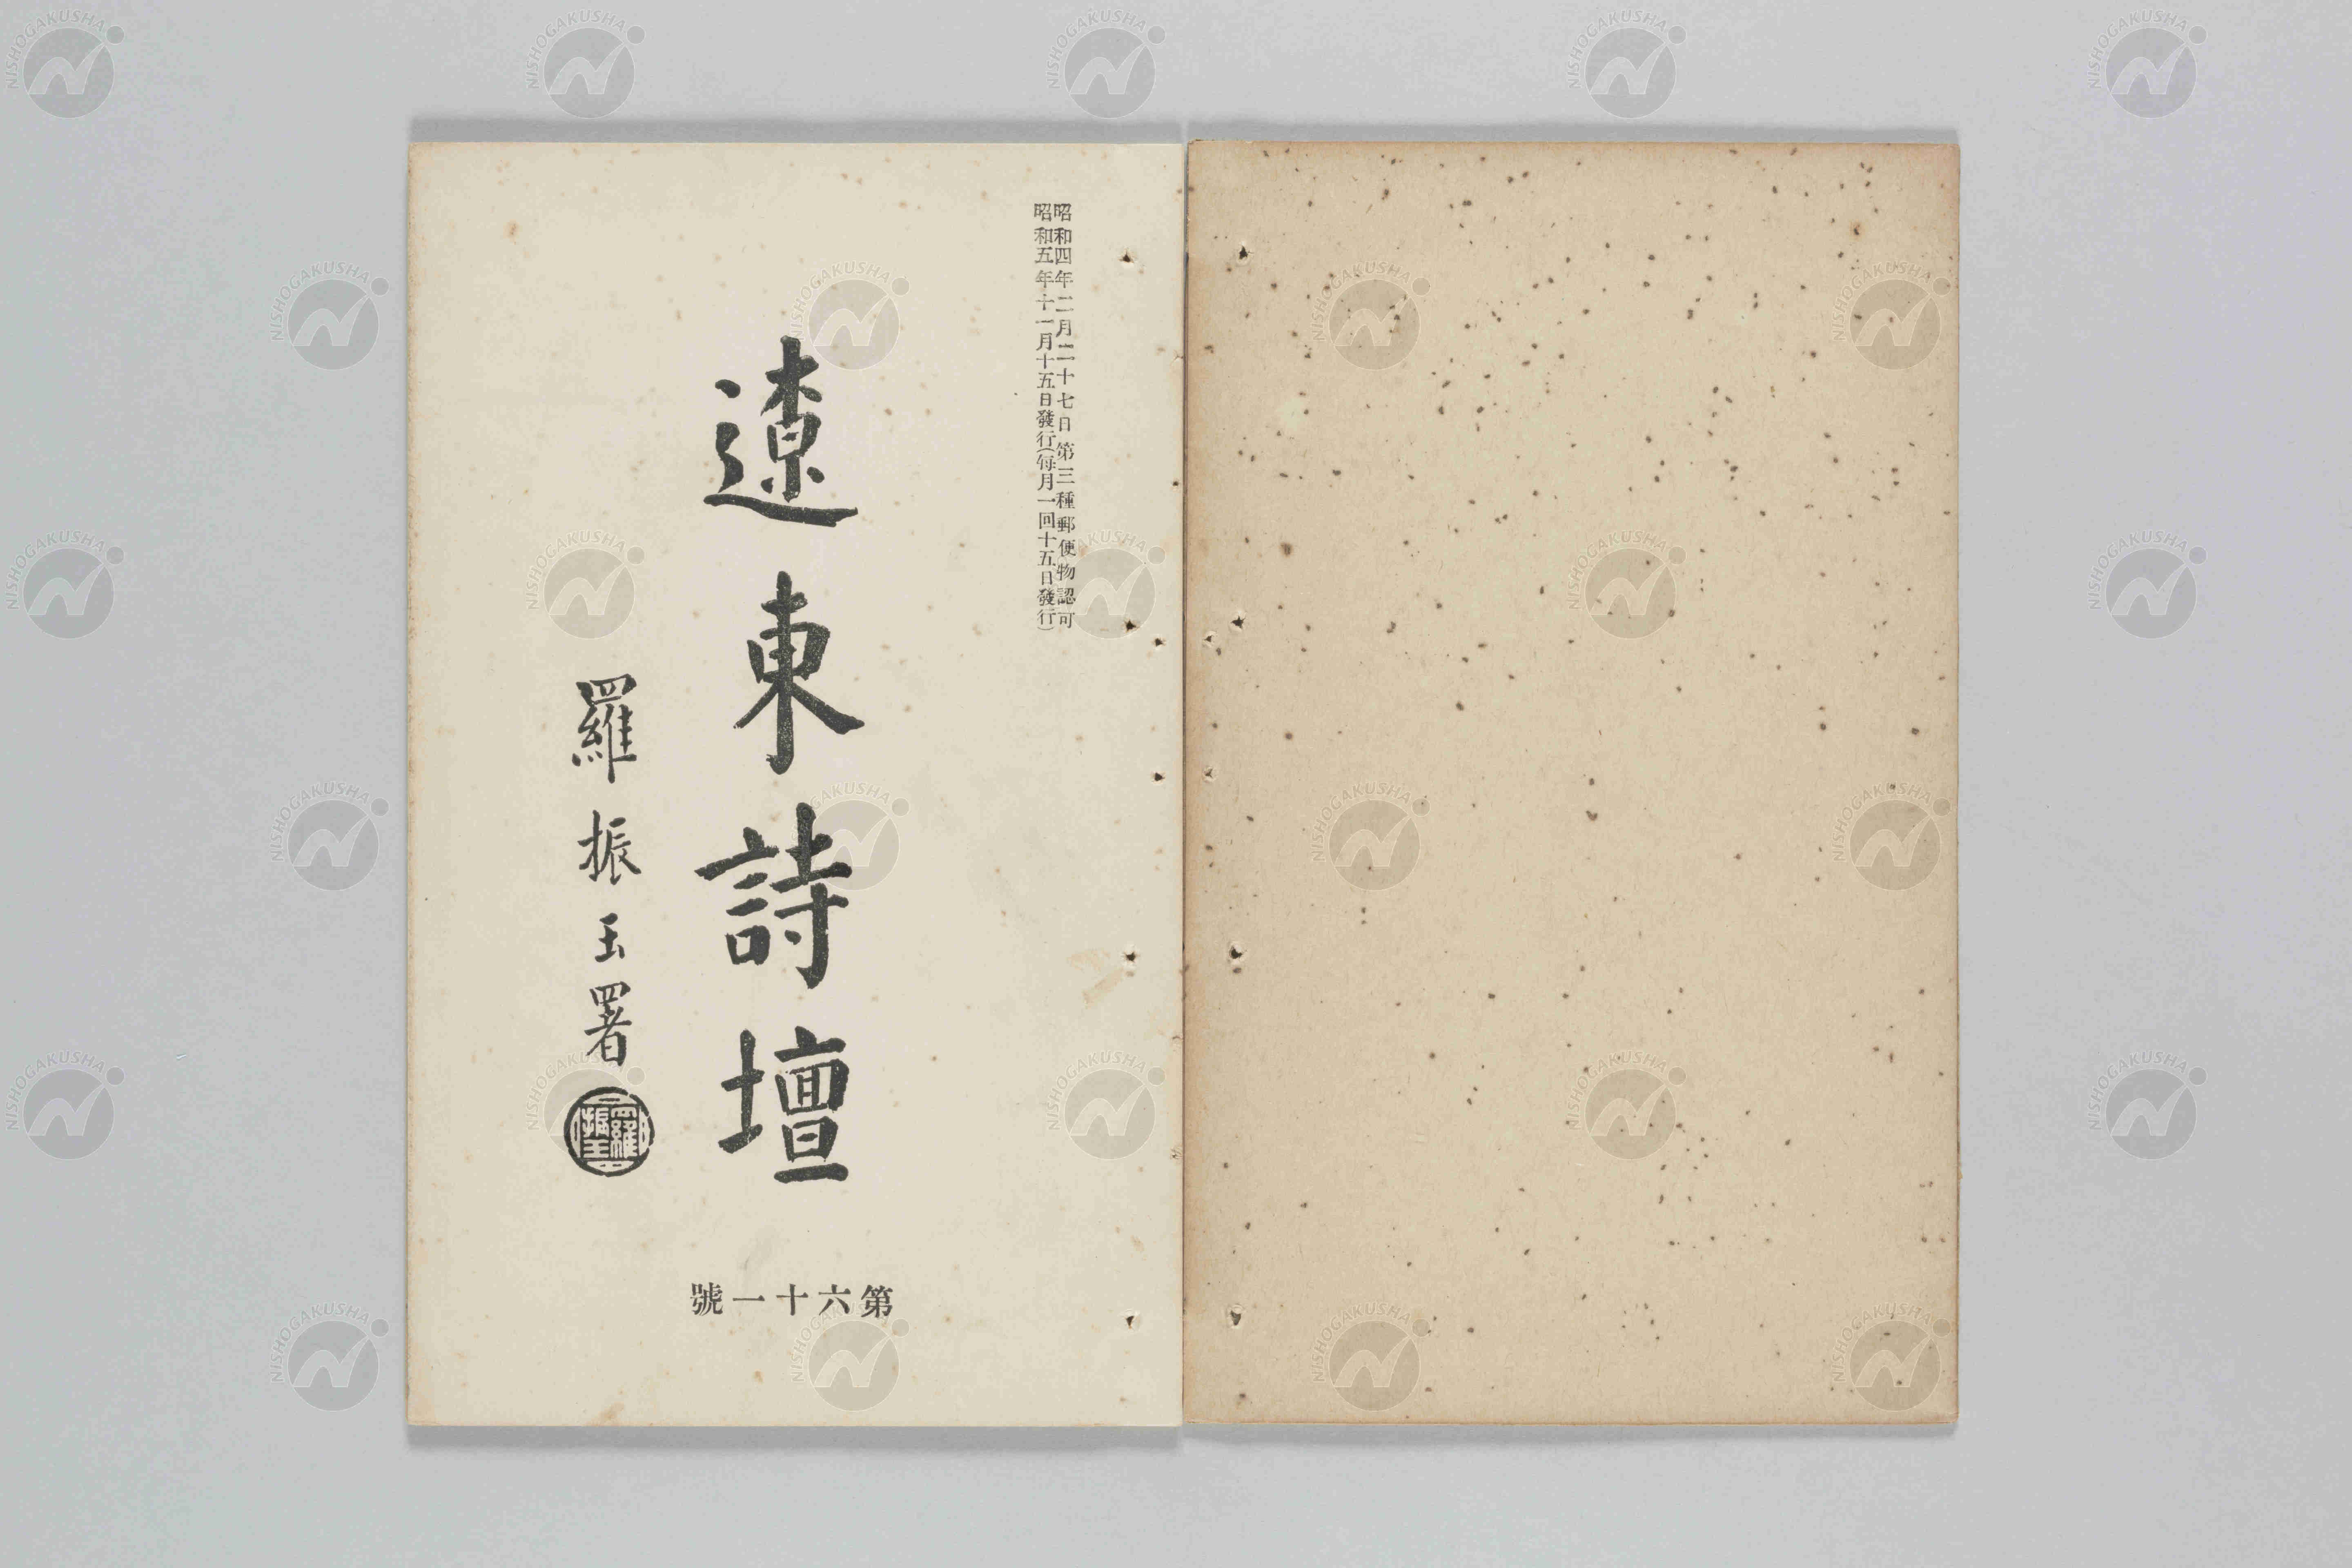 昭和四年二月二十七日第三種郵便物認可
昭和五年十一月十五日發行(每月一回十五日發行)
遼東詩壇
羅振玉署
羅振玉
第六十一號
NISHOGAKUSHA